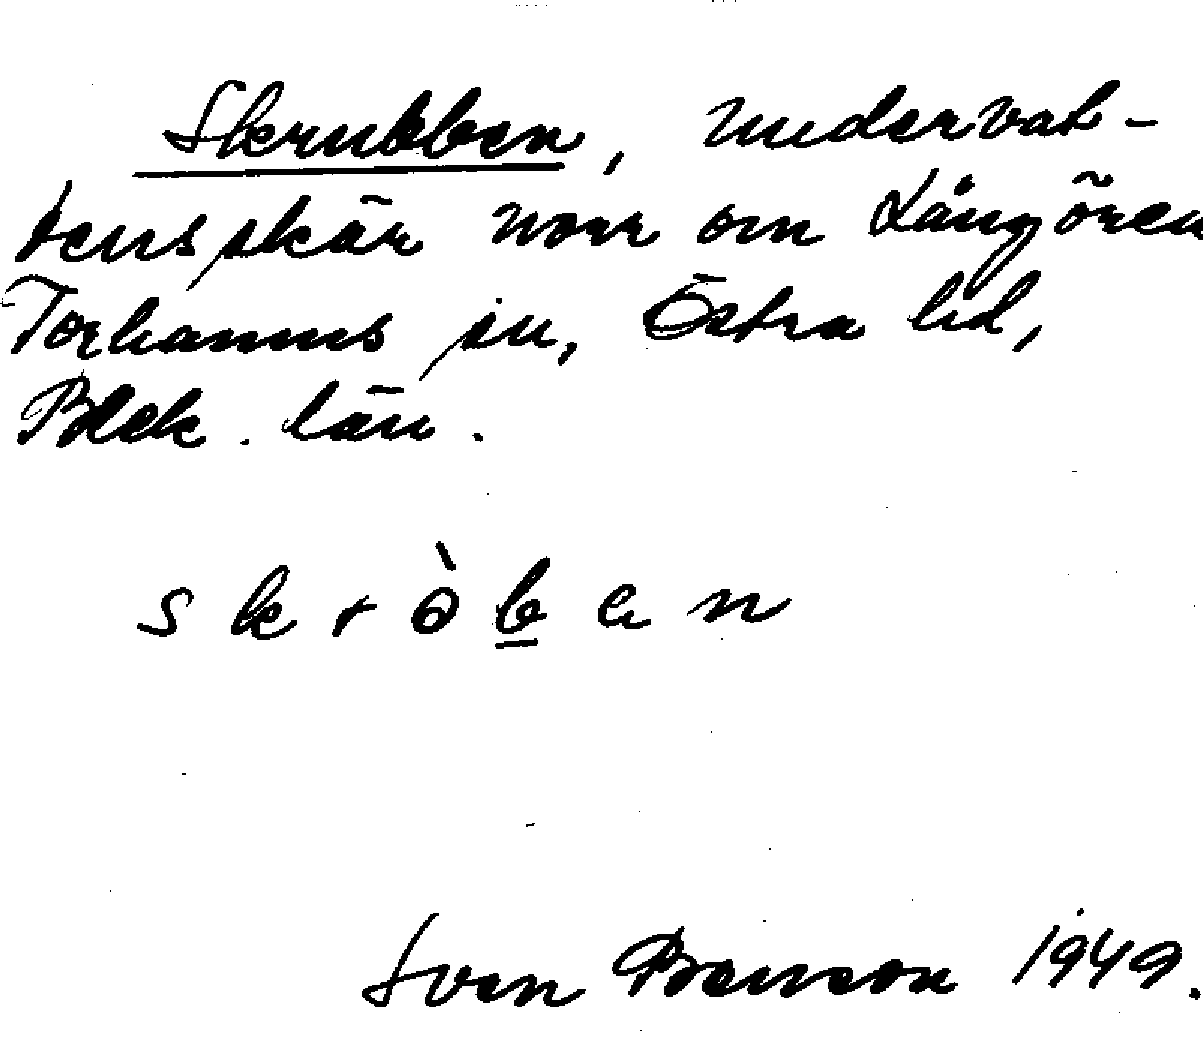 Skrubben, undervat-
tensskär norr om Långören
Torhamns sn, Östra hd,
Blek. län.
s k r ò b e n
Sven Benson 1949.